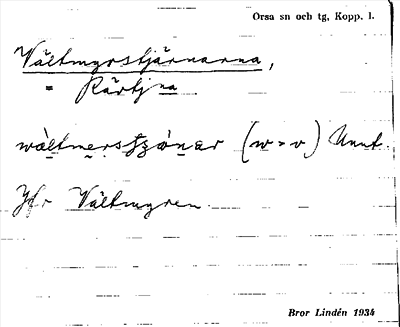 Orsa sn och tg, Kopp. l.
Vältmyrstjärnarna,
= Rärtjna
wältmerstjänar (w = v) Unnt.
Jfr Vältmyren.
Bror Lindén 1934